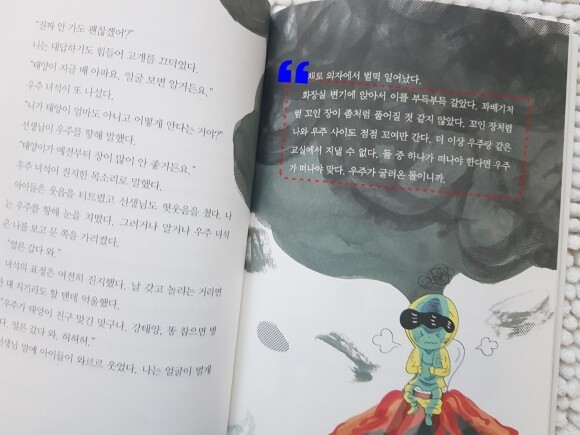 "진짜 안 가도 괜찮겠어?"
나는 대답하기도 힘들어 고개를 끄덕였다.
"태양이 지금 배 아파요. 얼굴 보면 알거든요."
우주 녀석이 또 나섰다.
"니가 태양이 엄마도 아니고 어떻게 안다는 거야?"
선생님이 우주를 향해 말했다.
"태양이가 예전부터 장이 많이 안 좋거든요."
우주 녀석이 진지한 목소리로 말했다.
아이들은 웃음을 터트렸고 선생님도 헛웃음을 쳤다. 나
는 우주를 향해 눈을 치떴다. 그러거나 말거나 우주 녀석
은 나를 보고 문 쪽을 가리켰다.
"얼른 갔다 와."
녀석의 표정은 여전히 진지했다. 날 갖고 놀리는 거라면
한 대 치기라도 할 텐데 억울했다.
"우주가 태양이 친구 맞긴 맞구나. 강태양, 똥 참으면 병
얼른 갔다 와. 허허허."
선생님 말에 아이들이 와르르 웃었다. 나는 얼굴이 벌게
채로 의자에서 벌떡 일어났다.
화장실 변기에 앉아서 이를 부득부득 갈았다. 꽈배기처
럼 꼬인 장이 좀처럼 풀어질 것 같지 않았다. 꼬인 장처럼
나와 우주 사이도 점점 꼬여만 간다. 더 이상 우주랑 같은
교실에서 지낼 수 없다. 둘 중 하나가 떠나야 한다면 우주
가 떠나야 맞다. 우주가 굴러온 돌이니까.